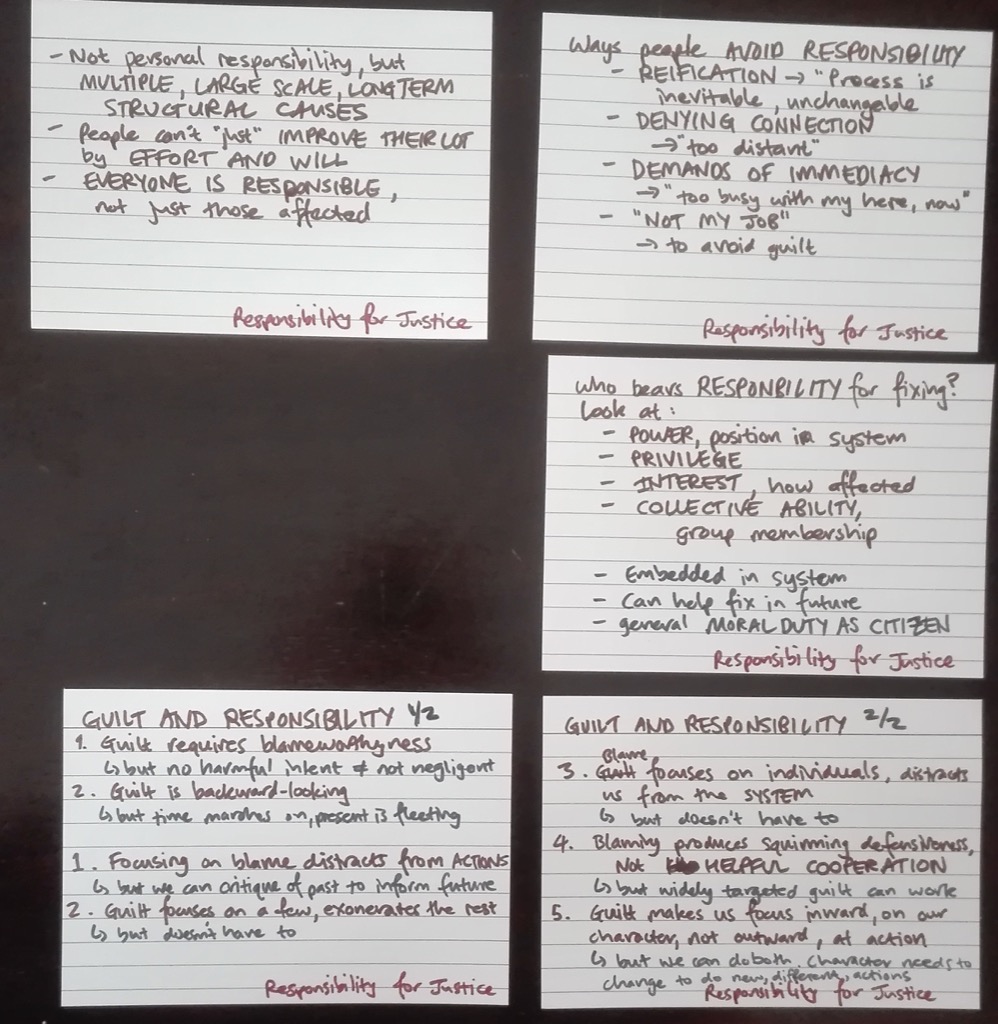 - Not personal responsibility, but
MULTIPLE, LARGE SCALE, LONG TERM
STRUCTURAL CAUSES
- People can't "just" IMPROVE THEIR LOT
by EFFORT AND WILL
- EVERYONE IS RESPONSIBLE,
not just those affected
Responsibility for Justice
Ways people AVOID RESPONSIBILITY
- REIFICATION → "Process is
inevitable, unchangable
- DENYING CONNECTION
→ "too distant"
- DEMANDS OF IMMEDIACY
→ "too busy with my here, now"
- "NOT MY JOB"
→ to avoid guilt
Responsibility for Justice
Who bears RESPONBILITY for fixing?
Look at:
- POWER, position in system
- PRIVILEGE
- INTEREST, how affected
- COLLECTIVE ABILITY,
group membership
- Embedded in system
- Can help fix in future
- general MORAL DUTY AS CITIZEN
Responsibility for Justice
GUILT AND RESPONSIBILITY 1/2
1. Guilt requires blameworthyness
↳ but no harmful intent ≠ not negligent
2. Guilt is backward-looking
↳ but time marches on, present is fleeting
1. Focusing on blame distracts from ACTIONS
↳ but we can critique of past to inform future
2. Guilt focuses on a few, exonerates the rest
↳ but doesn't have to
Responsibility for Justice
GUILT AND RESPONSIBILITY 2/2
Blame
3. Guilt focuses on individuals, distracts
us from the SYSTEM
↳ but doesn't have to
4. Blaming produces squirming defensiveness,
Not HELPFUL COOPERATION
↳ but widely targeted guilt can work
5. Guilt makes us focus inward, on our
character, not outward, at action
↳ but we can do both, character needs to
change to do new, different, actions
Responsibility for Justice